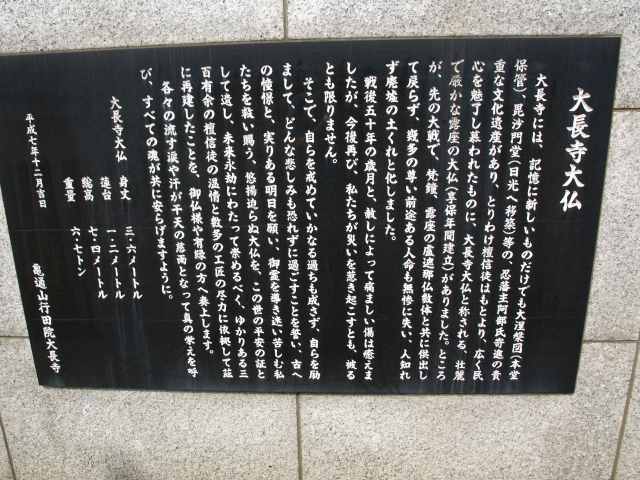 大長寺大仏
大長寺には、記憶に新しいものだけでも大涅槃図(本堂
保管)毘沙門堂(日光へ移築)等の、忍藩主阿部氏寄進の貴
重な文化遺産があり、とりわけ檀信徒はもとより、広く民
心を魅了し慕われたものに、大長寺大仏と称される、壮麗
で厳かな露座の大仏(享保年間建立)がありました。ところ
が、先の大戦で、梵鐘、露座の盧遮那仏数体と共に供出し
て戻らず、幾多の尊い前途ある人命も無惨に失い、人知れ
ず廃墟の土くれと化しました。
戦後五十年の歳月と、赦しによって痛ましい傷は癒えま
したが、今後再び、私たちが災いを惹き起こすとも、被る
とも限りません。
そこで、自らを戒めていかなる過ちも成さず、自らを励
まして、どんな悲しみも恐れずに過ごすことを誓い、古へ
の憧憬と、実りある明日を願い、御霊を導き迷い苦しむ私
たちを救い賜う、悠揚迫らぬ大仏を、この世の平安の証と
して遺し、未来永劫にわたって崇めるべく、ゆかりある三
百有余の檀信徒の温情と数多の工匠の尽力に依拠して茲
に再建したことを、御仏様や有縁の方へ奏上します。
各々の流す涙や汗が干天の慈雨となって真の栄えを呼
び、すべての魂が共に安らげますように。
大長寺大仏 身丈 三・六メートル
蓮台 一・二メートル
総高 七・四メートル
重量 六・七トン
平成七年十二月吉日
亀通山行田院大長寺